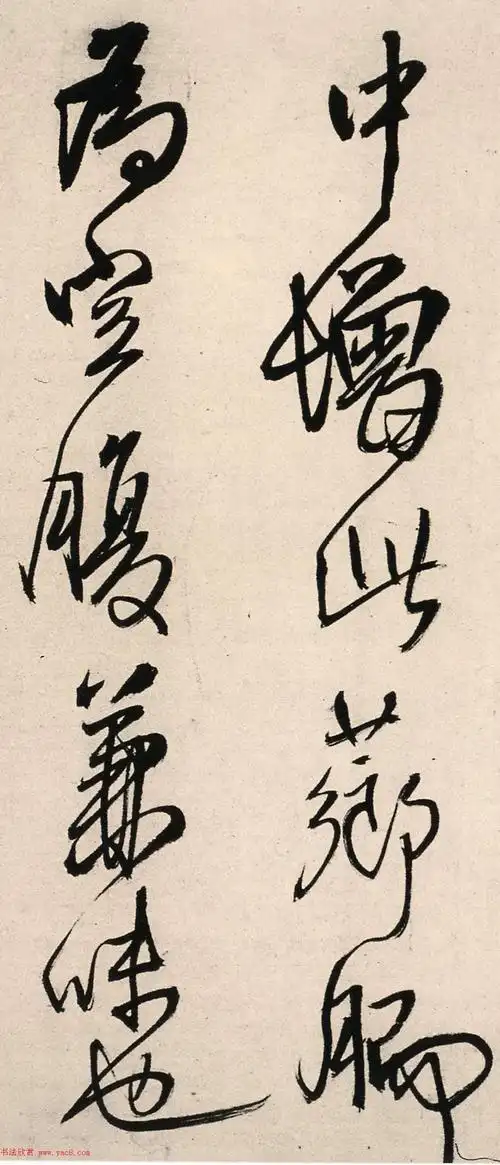 中增此薌
為空腹兼味也
书法欣赏 www.yac8.com